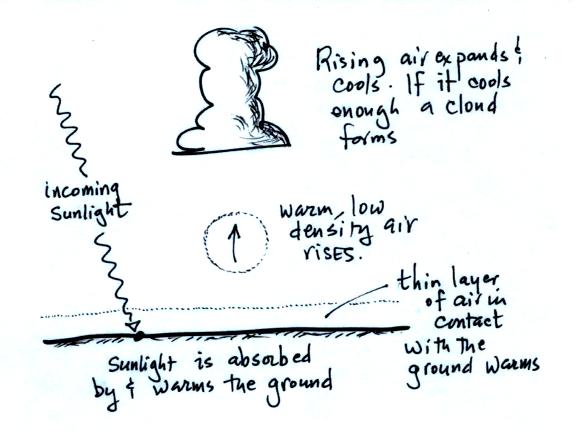 Rising air expands &
cools. If it cools
enough a cloud
forms
incoming
Sunlight
warm, low
density air
rises.
thin layer
of air in
contact
with the
ground warms
Sunlight is absorbed
by & warms the ground